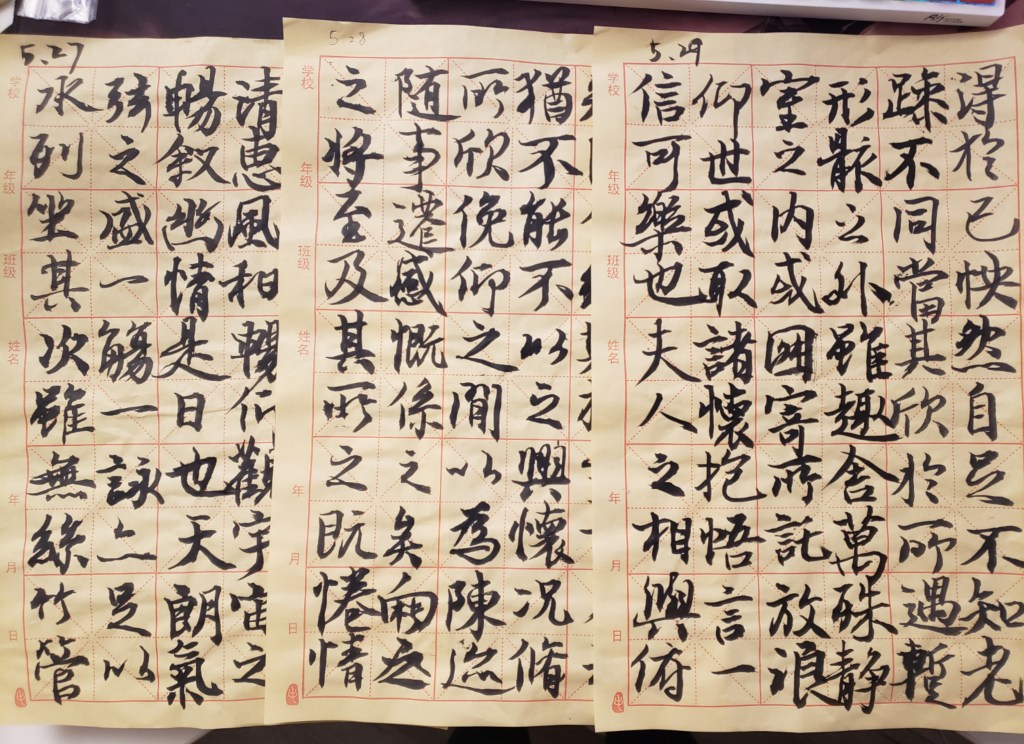 5.27
学校
年级
班级
姓名
年
月
日
水列坐其次雖無絲竹管
弦之盛一觴一詠亦足以
暢叙幽情是日也天朗氣
清惠風和暢仰觀宇宙之
5.28
学校
年级
班级
姓名
年
月
日
之將至及其所之既惓情
随事遷感慨係之矣向之
所欣俛仰之閒以為陳迹
猶不能不以之興懷况脩
5.29
学校
年级
班级
姓名
年
月
日
信可樂也夫人之相與俯
仰世或取諸懷抱悟言一
室之内或因寄所託放浪
形骸之外雖趣舍萬殊静
躁不同當其欣於所遇暫
得於己怏然自足不知老